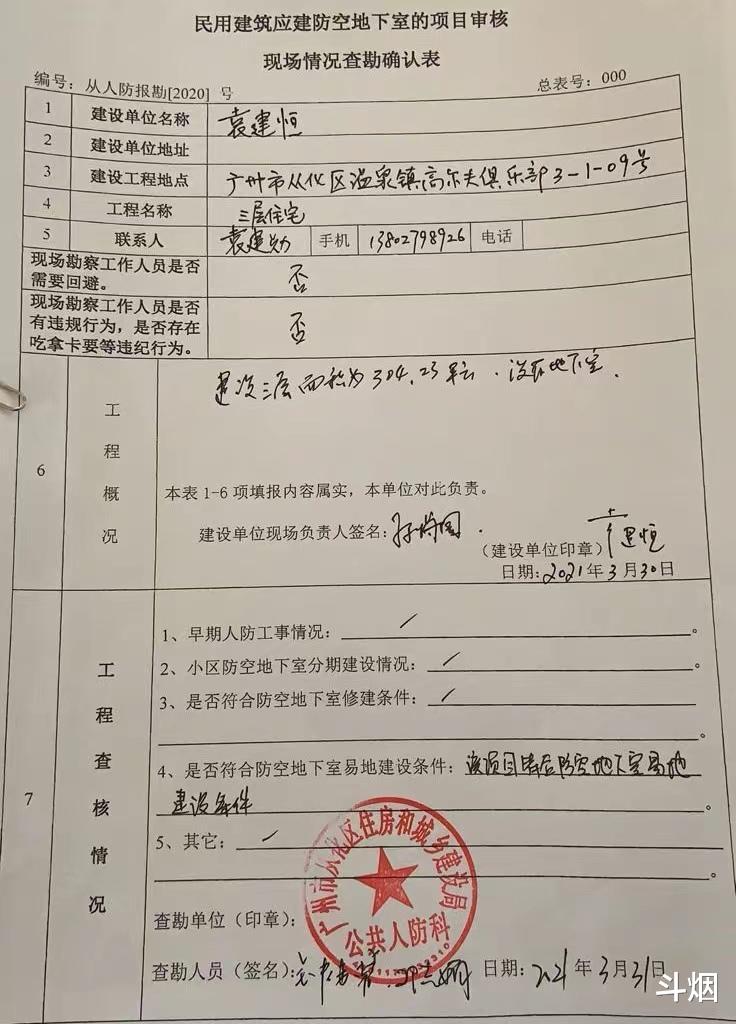 民用建筑应建防空地下室的项目审核
现场情况查勘确认表
编号：从人防报勘[2020] 号
总表号：000
1 建设单位名称 袁建恒
2 建设单位地址
3 建设工程地点 广州市从化区温泉镇高尔夫俱乐部3-1-09号
4 工程名称 三层住宅
5 联系人 袁建勋 手机 13802798926 电话
现场勘察工作人员是否
需要回避。
否
现场勘察工作人员是否
有违规行为，是否存在
吃拿卡要等违纪行为。
否
6
工程概况
建设三层面积为304.23平方．没有地下室．
本表1-6项填报内容属实，本单位对此负责。
建设单位现场负责人签名：
（建设单位印章） 建恒
日期：2021年3月30日
7
工程查核情况
1、早期人防工事情况：/。
2、小区防空地下室分期建设情况：/。
3、是否符合防空地下室修建条件：/
。
4、是否符合防空地下室易地建设条件：该项目符合防空地下室易地
建设条件。
5、其它：/
。
广州市从化区住房和城乡建设局
公共人防科
查勘单位（印章）：
查勘人员（签名）： 日期：2021年3月31日
斗烟